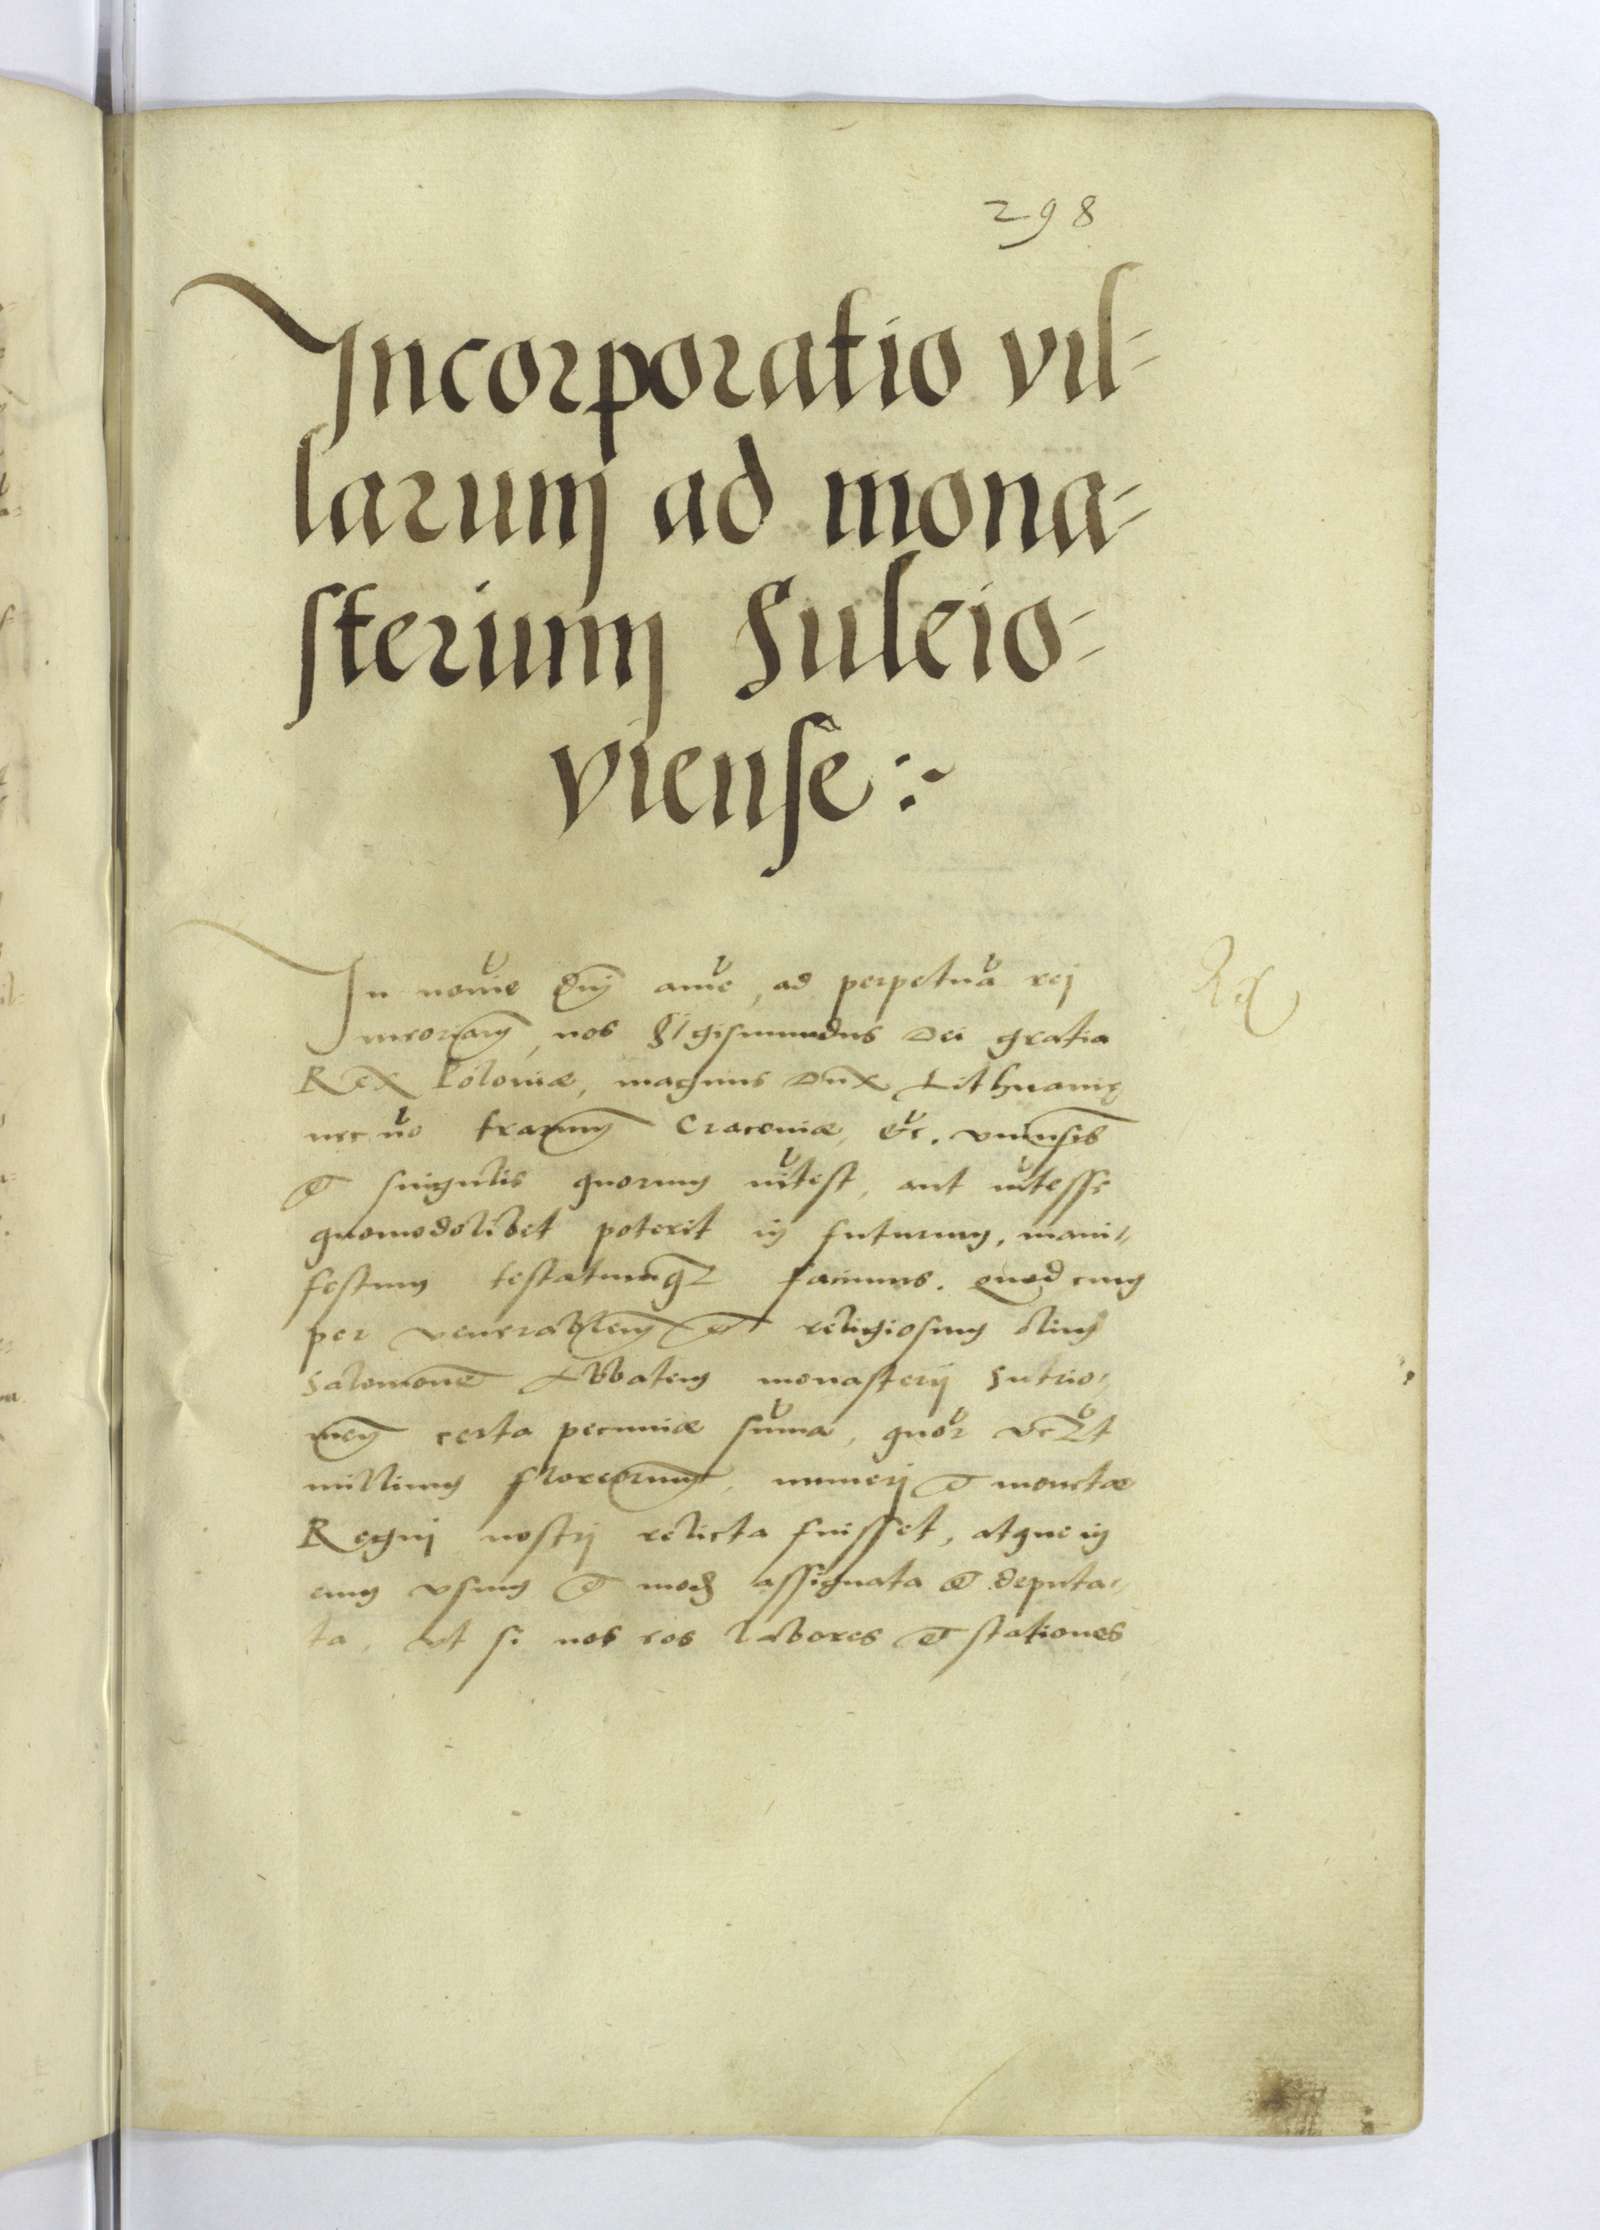 298
Incorporatio vil-
larum ad mona-
sterium Suleio-
viense :~
In noīe Dnj ame, ad perpetuā rej
meoriam, nos Sigismundus Dei gratia
Rex Poloniæ, magnus Dux Lithuanię
nec no trarum Cracoviæ, &c. vniuersis
& singulis quorum intest, aut intesse
quomodolibet poterit in futurum, mani-
festum testatumq3 facimus. Quod cum
per venerabilem et religiosum olim
Salomonē Abbatem monasterij Suleio-
uien certa pecuniæ sūma, quor
millium florenorum, numerj & monetæ
Regnj nostrj relicta fuisset, atque in
eum vsum & mod assignata & deputa-
ta, vt si nos eos labores & stationes